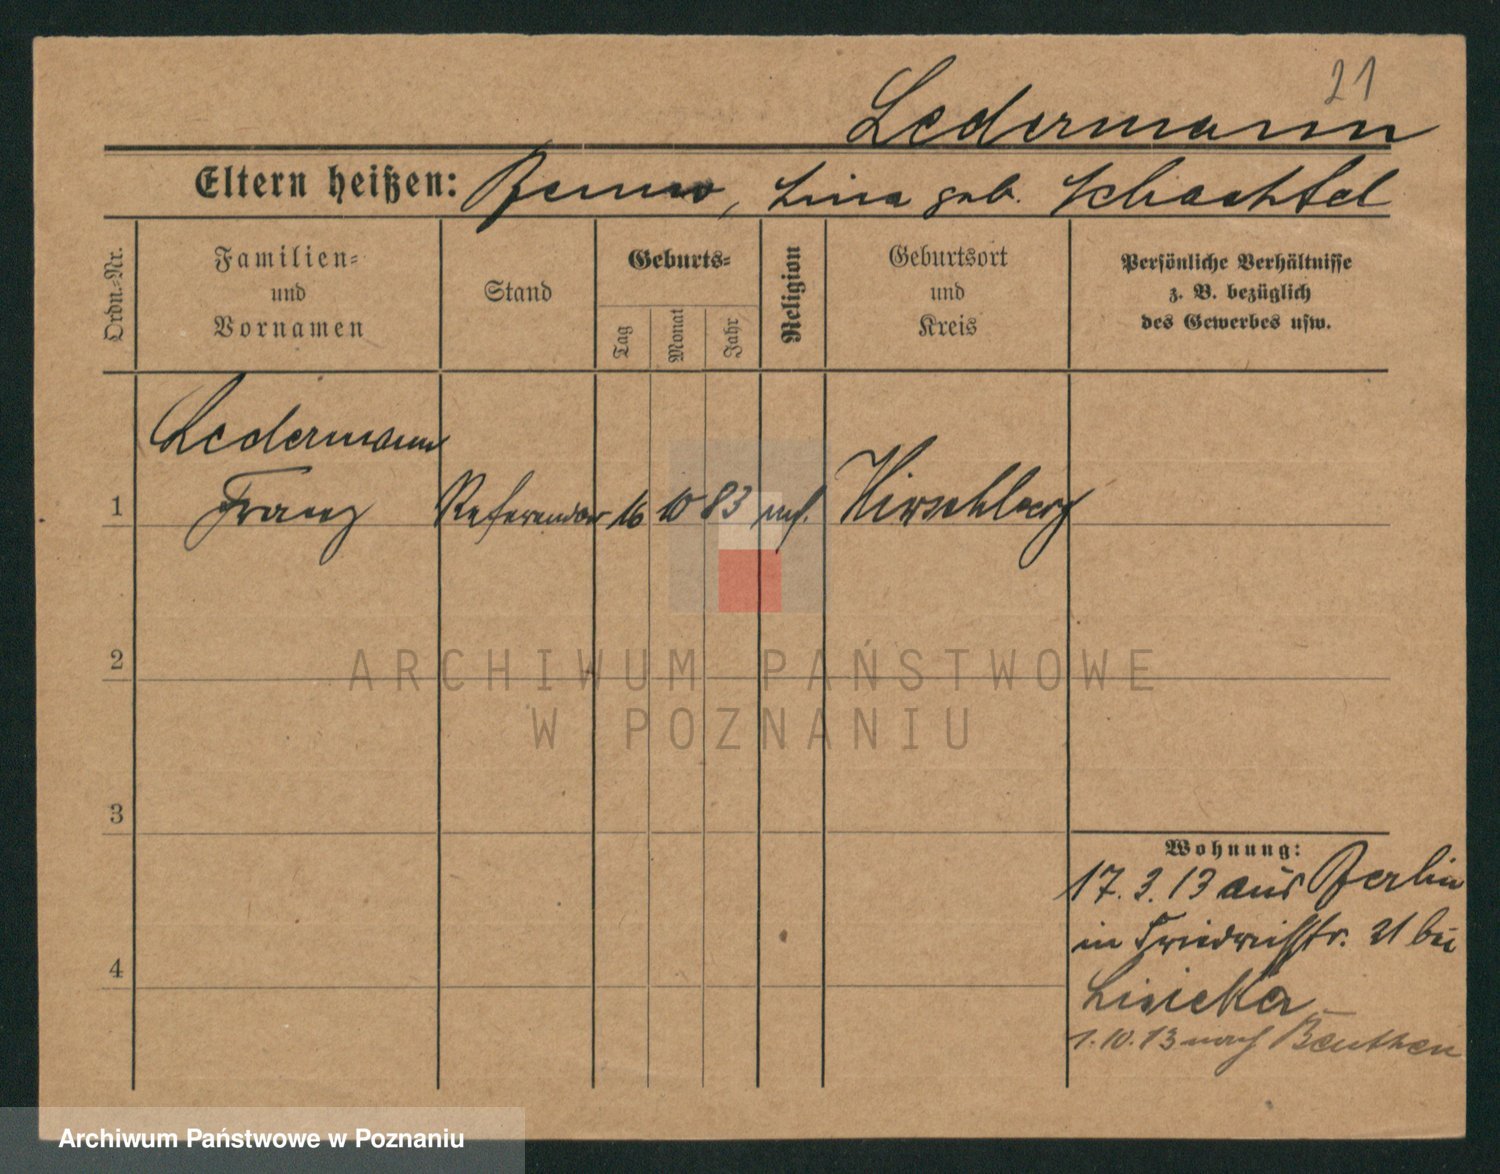 21
Ledermann
Eltern heißen: Benno, Lina geb. Schachtel
Ordn.-Nr.
Familien-
und
Vornamen
Stand
Geburts-
Tag
Monat
Jahr
Religion
Geburtsort
und
Kreis
Persönliche Verhältnisse
z. B. bezüglich
des Gewerbes usw.
Ledermann
1 Franz Referendar 16 10 83 Hirschberg
2
3
4
Wohnung:
17. 3. 13 aus Berlin
in Friedrichstr. 21 bei
Lisiecka
1. 10. 13 nach Beuthen
ARCHIWUM PAŃSTWOWE
W POZNANIU
Archiwum Państwowe w Poznaniu